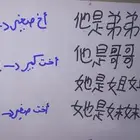 أخ صغير
他是弟弟
他是哥哥
她是姐姐
أخت صغير
她是妹妹